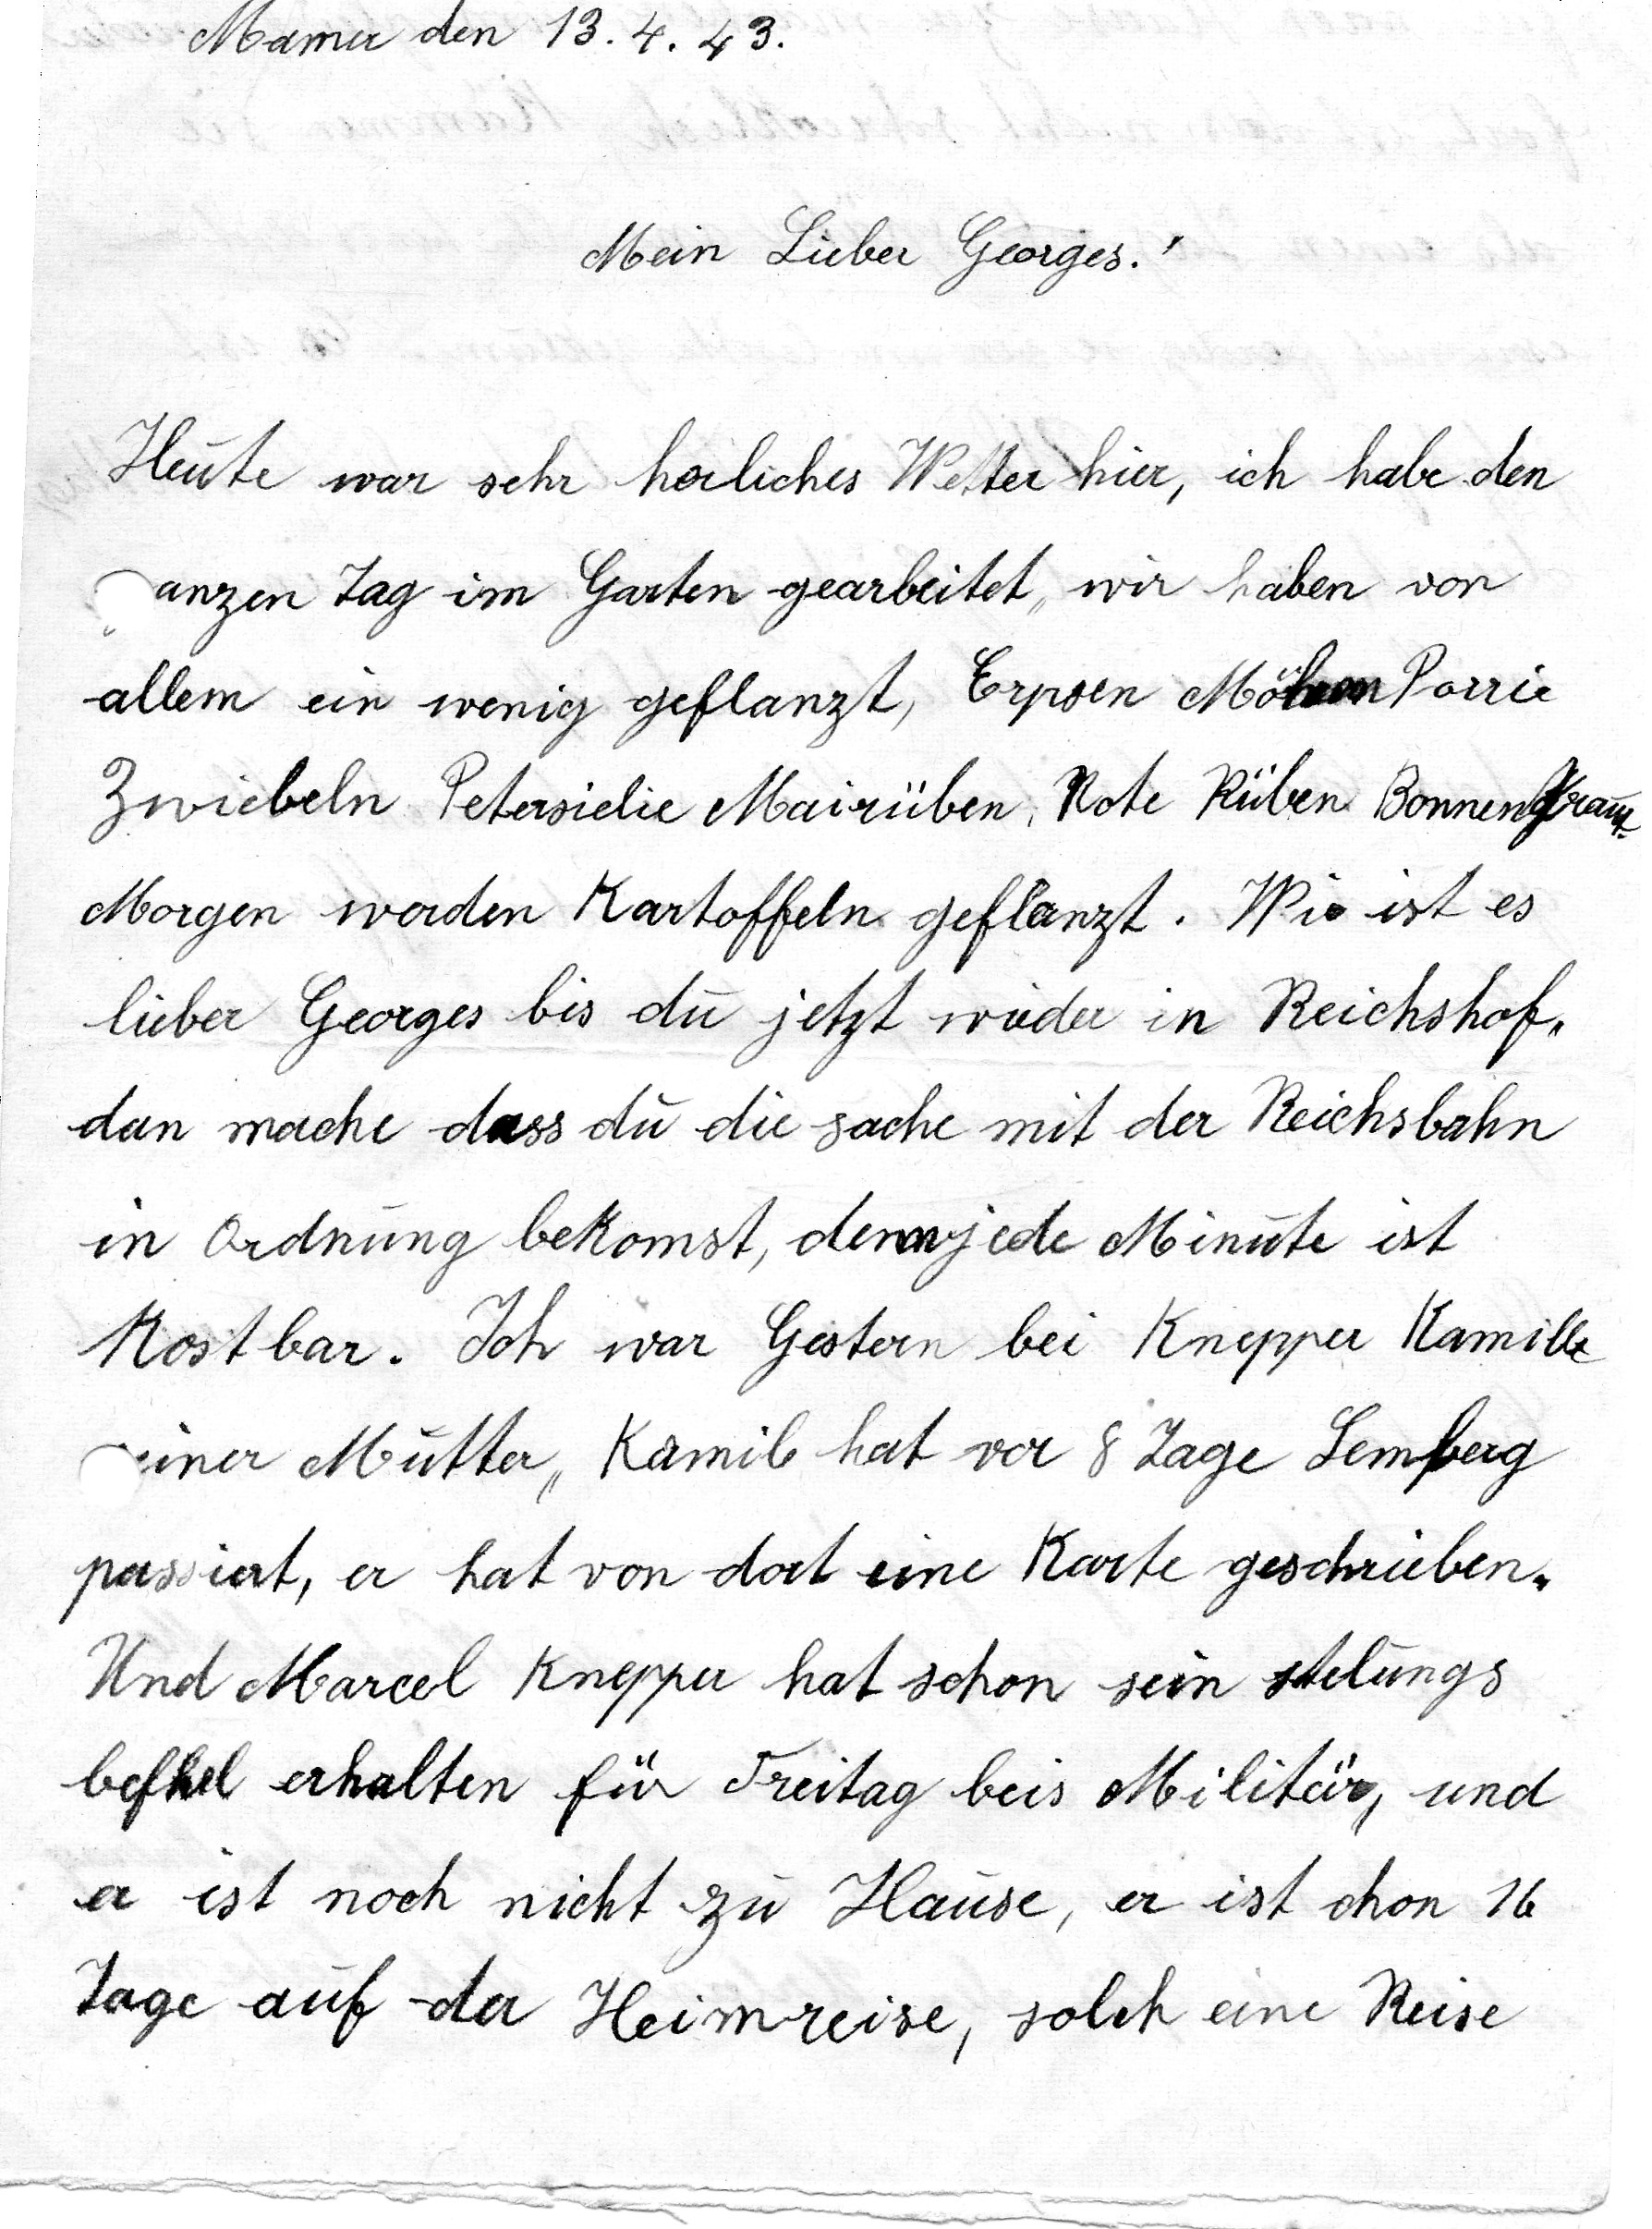 Mamer den 13.4.43.
Mein Lieber Georges.!
Heute war sehr herliches Wetter hier, ich habe den
anzen Tag im Garten gearbeitet, wir haben von
allem ein wenig geflanzt, Erpsen Möhren Porrie
Zwiebeln Petersielie Mairüben, Rote Rüben Bonnenkraut
Morgen werden Kartoffeln geflanzt. Wie ist es
lieber Georges bis du jetzt wieder in Reichshof.
dan mache dass du die sache mit der Reichsbahn
in Ordnung bekomst, denn jede Minute ist
Kostbar. Ich war Gestern bei Knepper Kamille
einer Mutter, Kamile hat vor 8 Tage Lemberg
passiert, er hat von dort eine Karte geschrieben.
Und Marcel Knepper hat schon sein stelungs
befhel erhalten für Freitag beis Militär, und
er ist noch nicht zu Hause, er ist chon 16
Tage auf der Heimreise, solch eine Reise